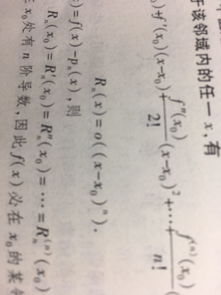 于该邻域内的任一 x,有
x₀)+f′(x₀)(x-x₀)+\frac{f″(x₀)}{2!}(x-x₀)²+⋯+\frac{f^{(n)}(x₀)}{n!}(
Rₙ(x)=o((x-x₀)ⁿ).
)=f(x)-pₙ(x),则
Rₙ(x₀)=R′ₙ(x₀)=R″ₙ(x₀)=⋯=Rₙ^{(n)}(x₀)
x₀处有 n 阶导数,因此 f(x)必在 x₀的某